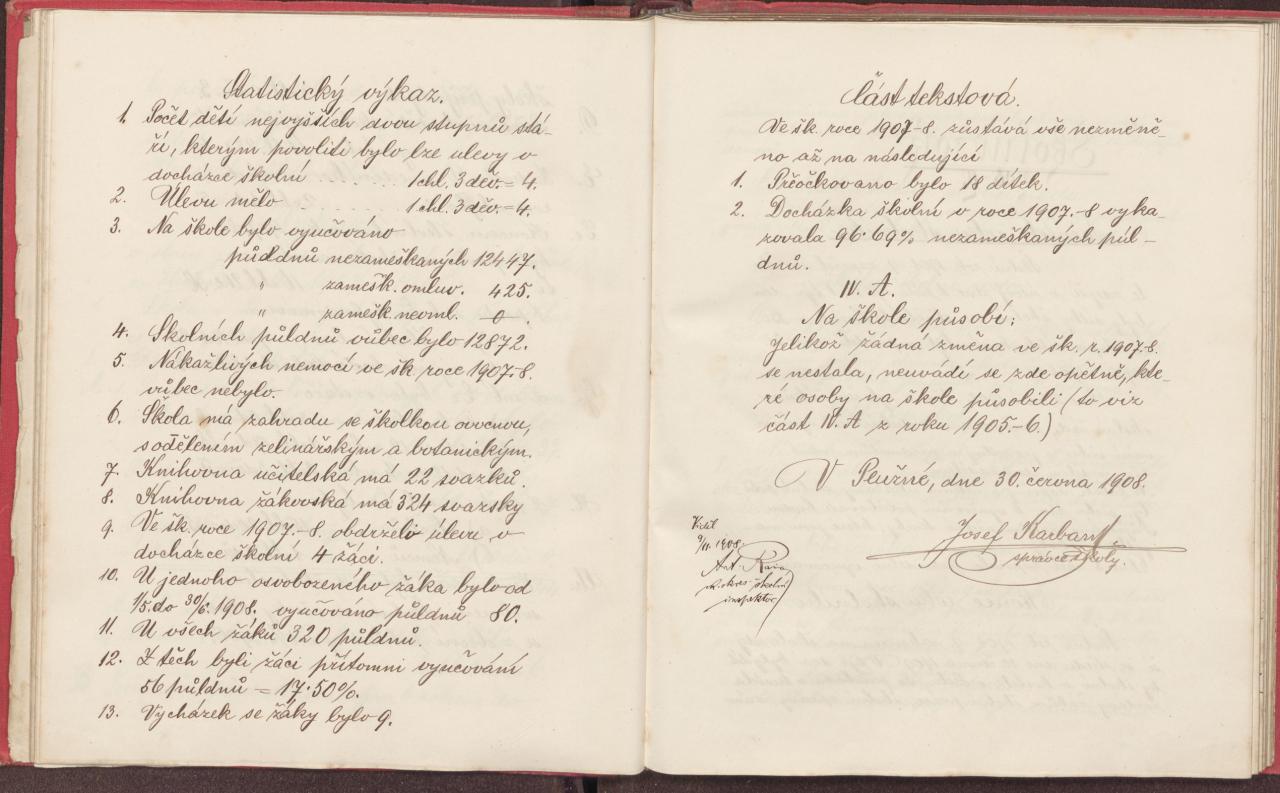 Statistický výkaz.
1. Počet dětí nejvyšších dvou stupňů stá-
ří, kterým povoliti bylo lze úlevy v
docházce školní . . . . . . . 1 chl. 3 děv. = 4.
2. Úlevu mělo . . . . . . . . 1 chl. 3 děv. = 4.
3. Na škole bylo vyučováno
půldnů nezameškaných 12447.
" zamešk. omluv. 425.
" zamešk. neoml. 0.
4. Školních půldnů vůbec bylo 12872.
5. Nákažlivých nemocí ve šk. roce 1907-8.
vůbec nebylo.
6. Škola má zahradu se školkou ovocnou,
s odělením zelinářským a botanickým.
7. Knihovna učitelská má 22 svazků.
8. Knihovna žákovská má 324 svazky
9. Ve šk. roce 1907.-8. obdrželi úlevu v
docházce školní 4 žáci.
10. U jednoho osvobozeného žáka bylo od
1/5. do 30/6. 1908. vyučováno půldnů 80.
11. U všech žáků 320 půldnů.
12. Z těch byli žáci přítomni vyučování
56 půldnů = 17.50%.
13. Vycházek se žáky bylo 9.
Část tekstová.
Ve šk. roce 1907-8. zůstává vše nezměně-
no až na následující
1. Přeočkováno bylo 18 dítek.
2. Docházka školní v roce 1907.-8 vyka-
zovala 96.69% nezameškaných půl-
dnů.
IV. A.
Na škole působí:
Jelikož žádná změna ve šk. r. 1907-8.
se nestala, neuvádí se zde opětně, kte-
ré osoby na škole působili (to viz
část IV. A z roku 1905.-6.)
V Plužné, dne 30. června 1908.
Viděl
9/11. 1908.
Ant.
c. k. okres. školní
inspektor
Josef
správce školy.